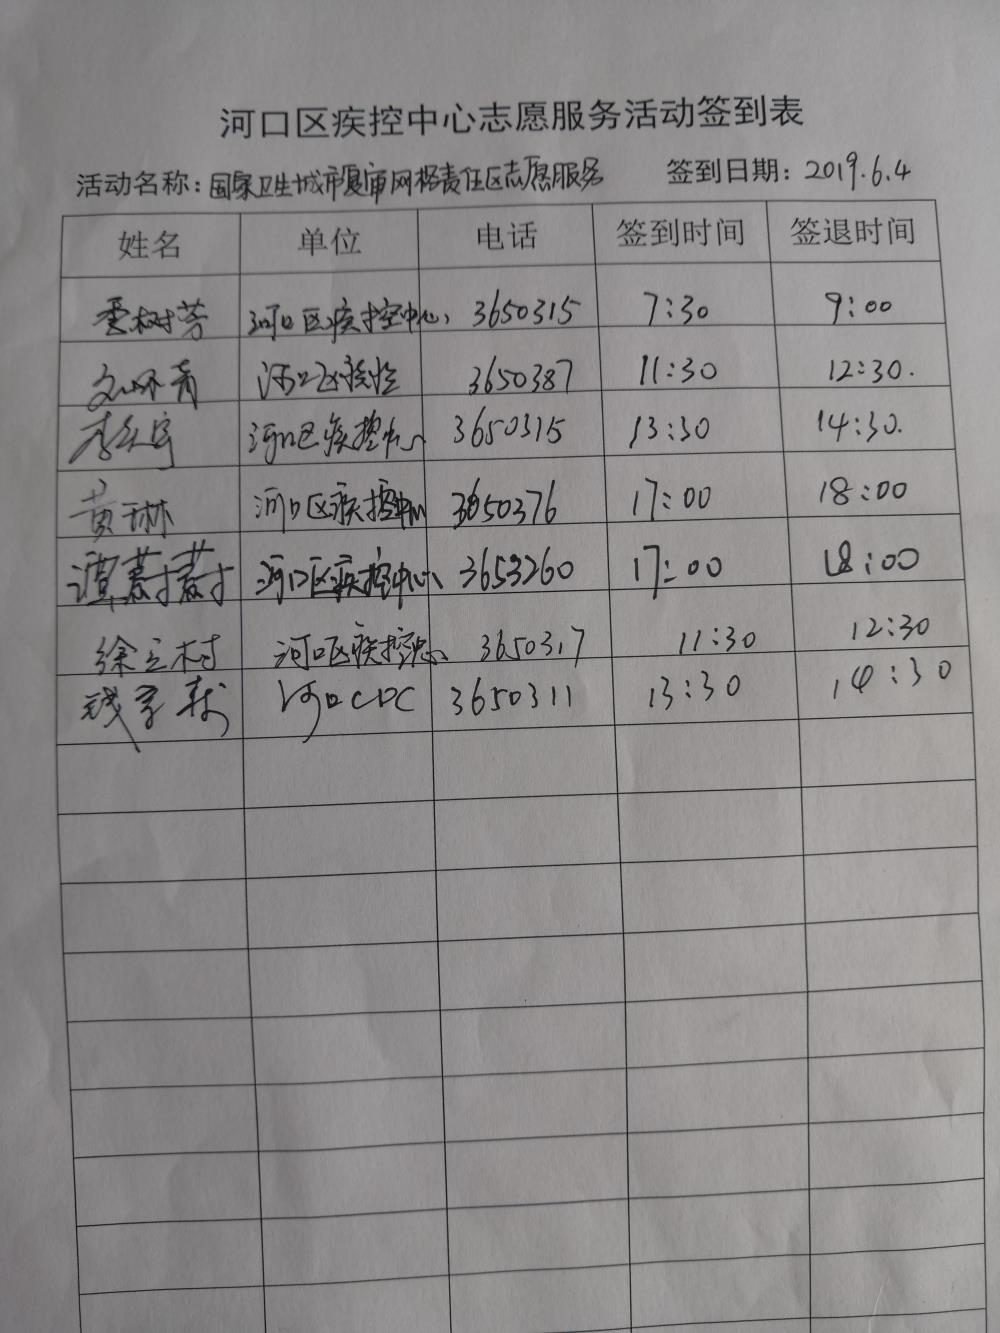 河口区疾控中心志愿服务活动签到表
活动名称：国家卫生城市复审网格责任区志愿服务 签到日期：2019.6.4
姓名 单位 电话 签到时间 签退时间
树芳 河口区疾控中心 3650315 7:30 9:00
河口区疾控 3650387 11:30 12:30.
李 河口区疾控中心 3650315 13:30 14:30.
黄琳 河口区疾控中心 3650376 17:00 18:00
谭 河口区疾控中心 3653260 17:00 18:00
徐立村 河口区疾控中心 3650317 11:30 12:30
河口CDC 3650311 13:30 14:30